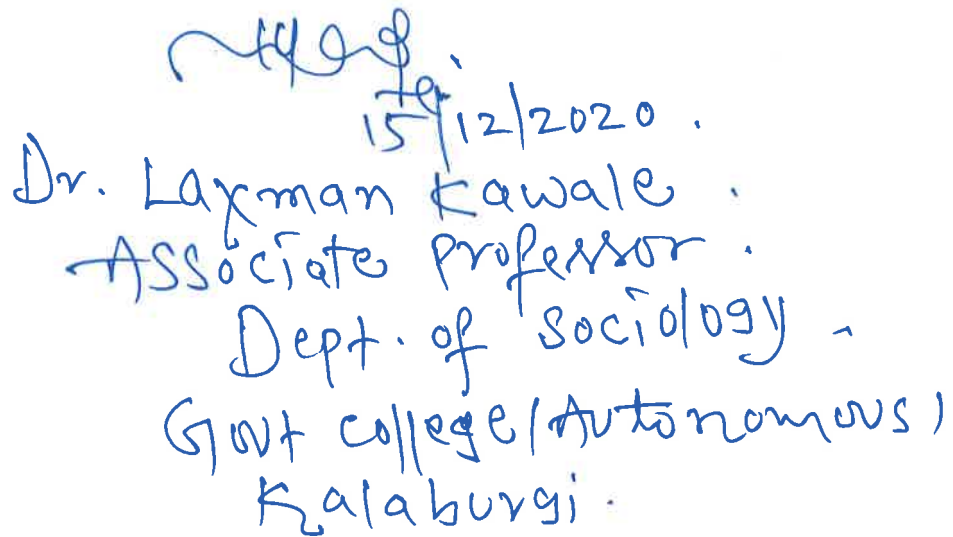 15/12/2020.
Dr. Laxman Kawale.
Associate Professor.
Dept. of Sociology.
Govt College (Autonomous)
Kalaburgi.